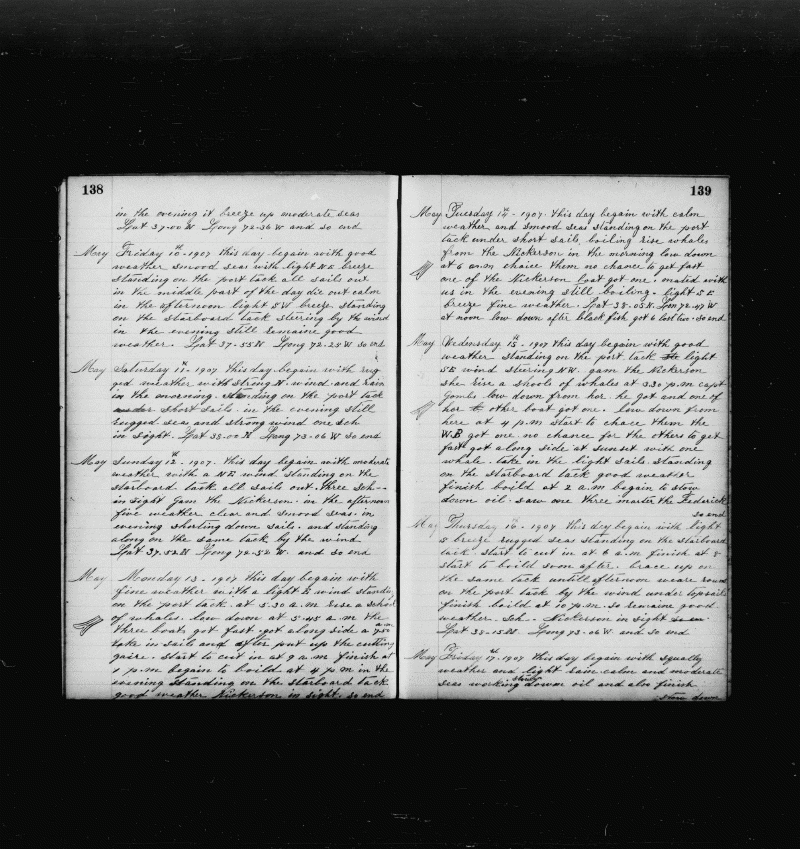 138
in the evening it breeze up moderate seas
Lat 37-00 N Long 72-36 W and so end
May Friday 10th-1907 this day begain with good
weather smood seas with light N.E. breeze
standing on the port tack all sails out
in the middle part of the day die out calm
in the afternoon light SW breeze standing
on the starboard tack steering by the wind
in the evening still remaine good
weather. Lat 37-55 N Long 72-25 W so end
May Saturday 11th-1907 this day begain with rug
ged weather with strong N. wind and rain
in the morning. standing on the port tack
under short sails. in the evening still
rugged seas and strong wind one sch
in sight. Lat 38-00 N Long 73-06 W so end
May Sunday 12th. 1907. this day begain with moderate
weather with a N.E wind standing on the
starboard tack all sails out. three Sch--
in sight Gam the Nickerson. in the afternoon
fine weather clear and smood seas. in
evening shorting down sails. and standing
along on the same tack by the wind
Lat 37-52 N Long 72-52 W. and so end
May Monday 13-1907 this day begain with
fine weather with a light E wind standing
on the port tack. at 5.30 a.m rise a school
of whales. low down at 5.45 a.m the
three boats got fast got along side a 7.50 a.m
take in sails and after put up the cutting
gaire. start to cut in at 9 a.m. finish at
1 p.m. began to boild at 4 p m in the
evening standing on the starboard tack
good weather Nickerson in sight. so end
139
May Tuesday 14th-1907. this day begain with calm
weather and smood seas standing on the port
tack under short sails. boiling rise whales
from the Nickerson in the morning low down
at 6 a.m chaice them no chance to get fast
one of the Nickerson boat got one. mated with
us in the evening still boiling. light S.E
breeze fine weather. Lat 38-05 N. Lon 72-47 W
at noon low down after black fish got 6 lost two. so end
May Wednesday 15th-1907 this day begain with good
weather standing on the port tack light
SE wind steering N.W. gam the Nickerson
she rise a shoole of whales at 3.30 p.m capt
Gombs low down from her. he got and one of
her other boat got one. low down from
here at 4 p.m start to chace them the
W.B got one no chance for the others to get
fast got along side at sunset with one
whale. take in the light sails standing
on the starboard tack good weather
finish boild at 2 a.m begain to stow
down oil. saw one three marter the Federick
so end
May Thursday 16th-1907 this dey begain with light
S breeze rugged seas standing on the starboard
taik start to cut in at 6 a.m finish at 8
start to boild soon after. brace up on
the same tack untill afternoon weare round
on the port tack by the wind under topsails
finish boild at 10 p.m. so remaine good
weather. Sch. Nickerson in sight
Lat 38-15 N Long 73-06 W and so end
May Friday 17th-1907 this day begain with squally
weather and light rain calm and moderate
seas working stowing down oil and also finish
stow down